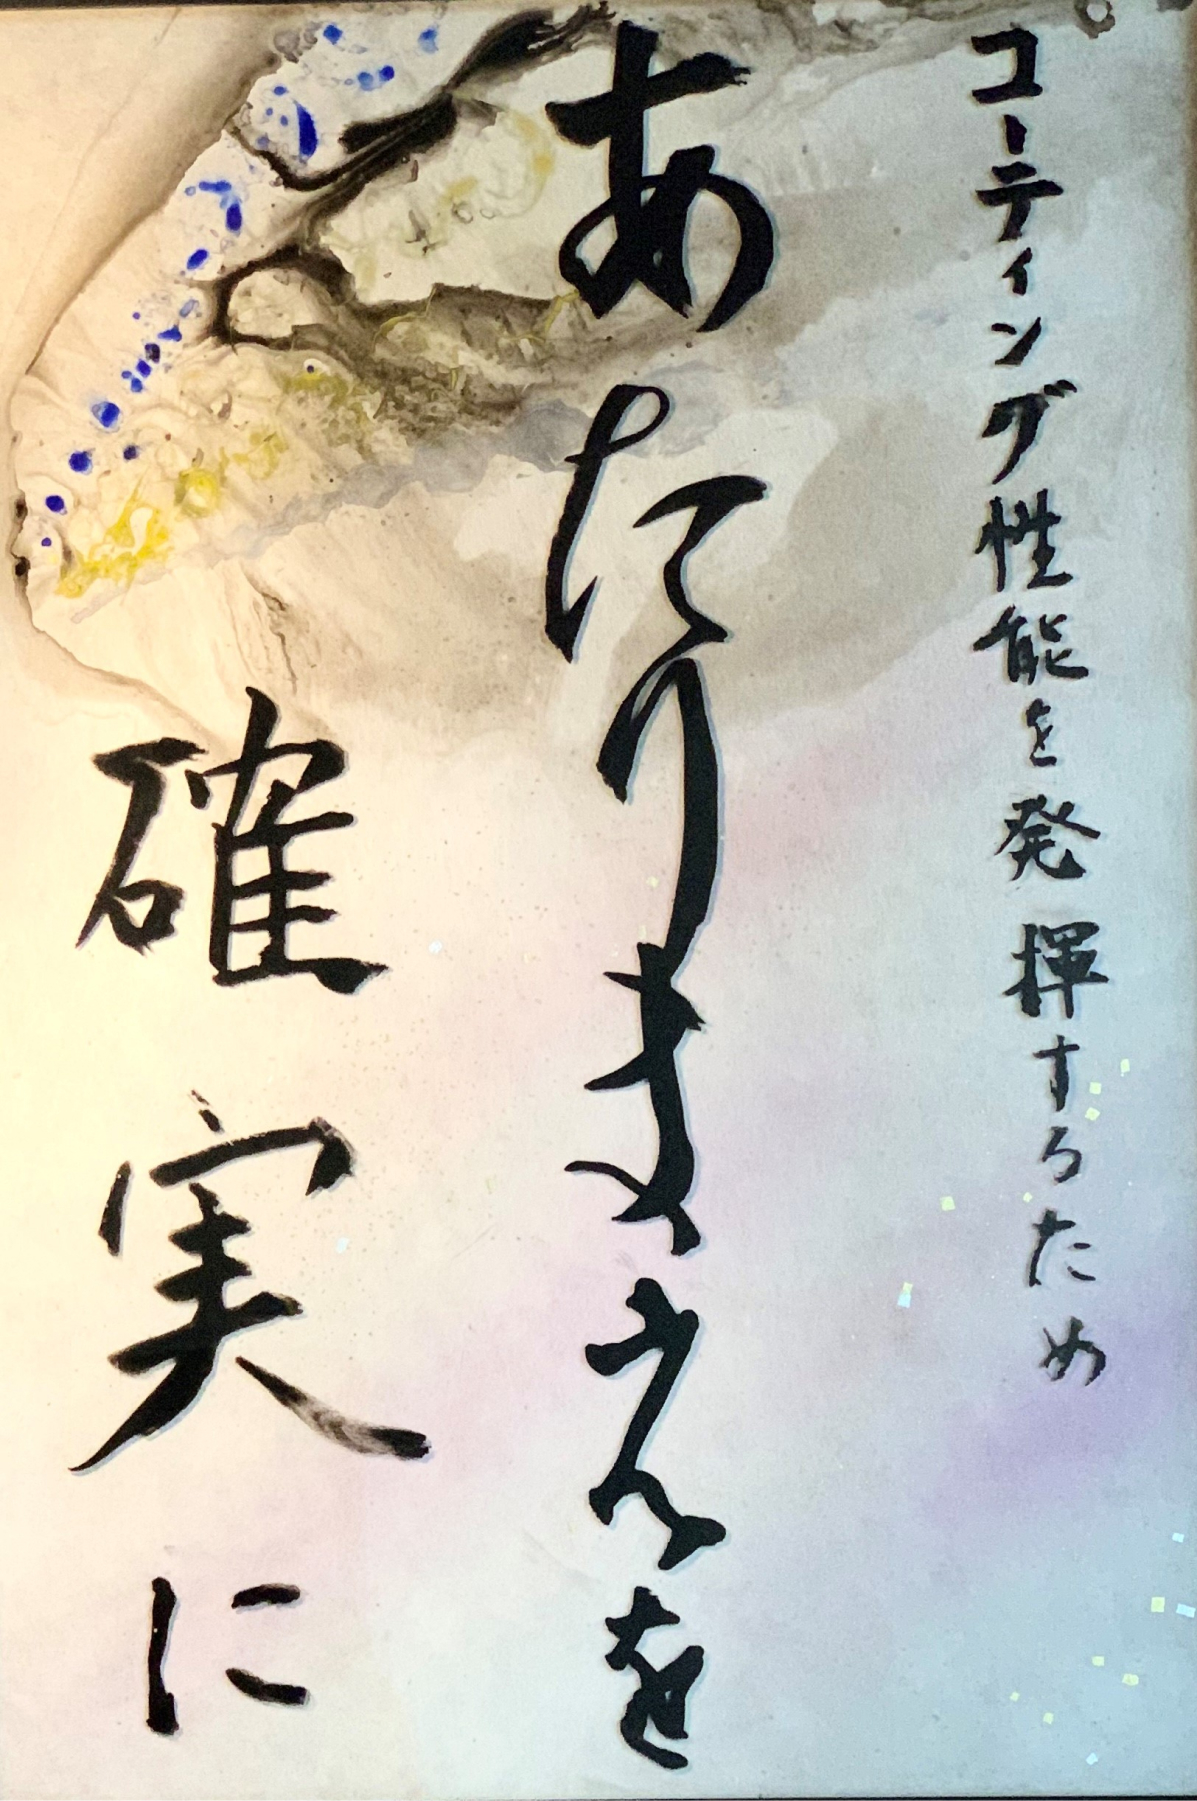 コーティング性能を発揮するため
あたりまえを
確実に